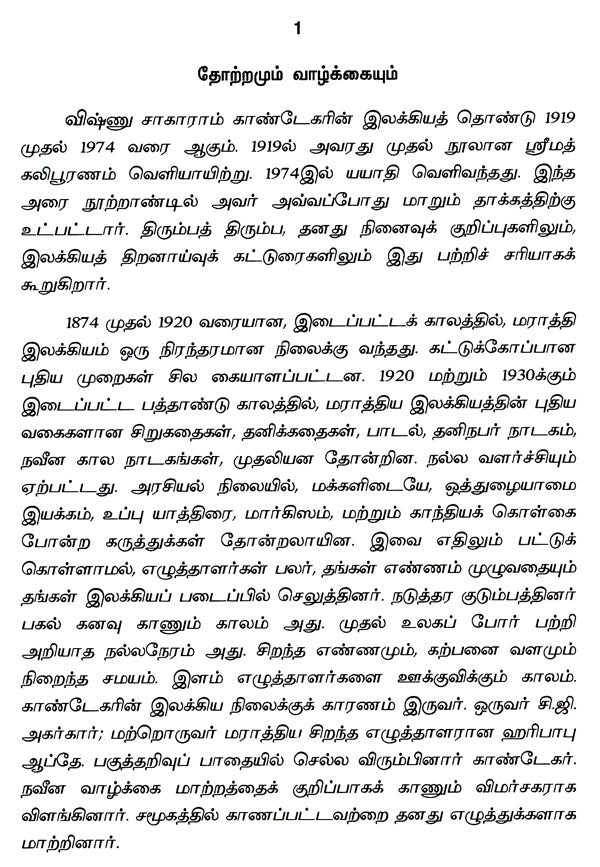 1
தோற்றமும் வாழ்க்கையும்
விஷ்ணு சாகாராம் காண்டேகரின் இலக்கியத் தொண்டு 1919
முதல் 1974 வரை ஆகும். 1919ல் அவரது முதல் நூலான ஸ்ரீமத்
கலிபூரணம் வெளியாயிற்று. 1974இல் யயாதி வெளிவந்தது. இந்த
அரை நூற்றாண்டில் அவர் அவ்வப்போது மாறும் தாக்கத்திற்கு
உட்பட்டார். திரும்பத் திரும்ப, தனது நினைவுக் குறிப்புகளிலும்,
இலக்கியத் திறனாய்வுக் கட்டுரைகளிலும் இது பற்றிச் சரியாகக்
கூறுகிறார்.
1874 முதல் 1920 வரையான, இடைப்பட்டக் காலத்தில், மராத்தி
இலக்கியம் ஒரு நிரந்தரமான நிலைக்கு வந்தது. கட்டுக்கோப்பான
புதிய முறைகள் சில கையாளப்பட்டன. 1920 மற்றும் 1930க்கும்
இடைப்பட்ட பத்தாண்டு காலத்தில், மராத்திய இலக்கியத்தின் புதிய
வகைகளான சிறுகதைகள், தனிக்கதைகள், பாடல், தனிநபர் நாடகம்,
நவீன கால நாடகங்கள், முதலியன தோன்றின. நல்ல வளர்ச்சியும்
ஏற்பட்டது. அரசியல் நிலையில், மக்களிடையே, ஒத்துழையாமை
இயக்கம், உப்பு யாத்திரை, மார்கிஸம், மற்றும் காந்தியக் கொள்கை
போன்ற கருத்துக்கள் தோன்றலாயின. இவை எதிலும் பட்டுக்
கொள்ளாமல், எழுத்தாளர்கள் பலர், தங்கள் எண்ணம் முழுவதையும்
தங்கள் இலக்கியப் படைப்பில் செலுத்தினர். நடுத்தர குடும்பத்தினர்
பகல் கனவு காணும் காலம் அது. முதல் உலகப் போர் பற்றி
அறியாத நல்லநேரம் அது. சிறந்த எண்ணமும், கற்பனை வளமும்
நிறைந்த சமயம். இளம் எழுத்தாளர்களை ஊக்குவிக்கும் காலம்.
காண்டேகரின் இலக்கிய நிலைக்குக் காரணம் இருவர். ஒருவர் சி.ஜி.
அகர்கார்; மற்றொருவர் மராத்திய சிறந்த எழுத்தாளரான ஹரிபாபு
ஆப்தே. பகுத்தறிவுப் பாதையில் செல்ல விரும்பினார் காண்டேகர்.
நவீன வாழ்க்கை மாற்றத்தைக் குறிப்பாகக் காணும் விமர்சகராக
விளங்கினார். சமூகத்தில் காணப்பட்டவற்றை தனது எழுத்துக்களாக
மாற்றினார்.